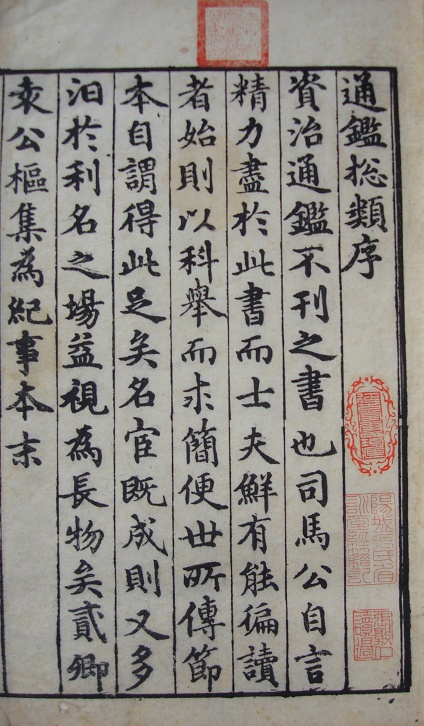 通鑑捴類序
資治通鑑不刊之書也司馬公自言
精力盡於此書而士夫鮮有能徧讀
者始則以科舉而求簡便世所傳節
本自謂得此足矣名宦既成則又多
汨於利名之場益視為長物矣貳卿
袁公樞集為紀事本末